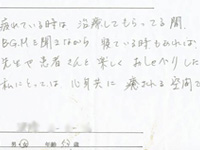 疲れている時は 治療してもらってる間、
BGMを聞きながら 寝ている時もあれば、
先生や患者さんと楽しくおしゃべりした
私にとっては 心身共に 癒される空間で
年齢